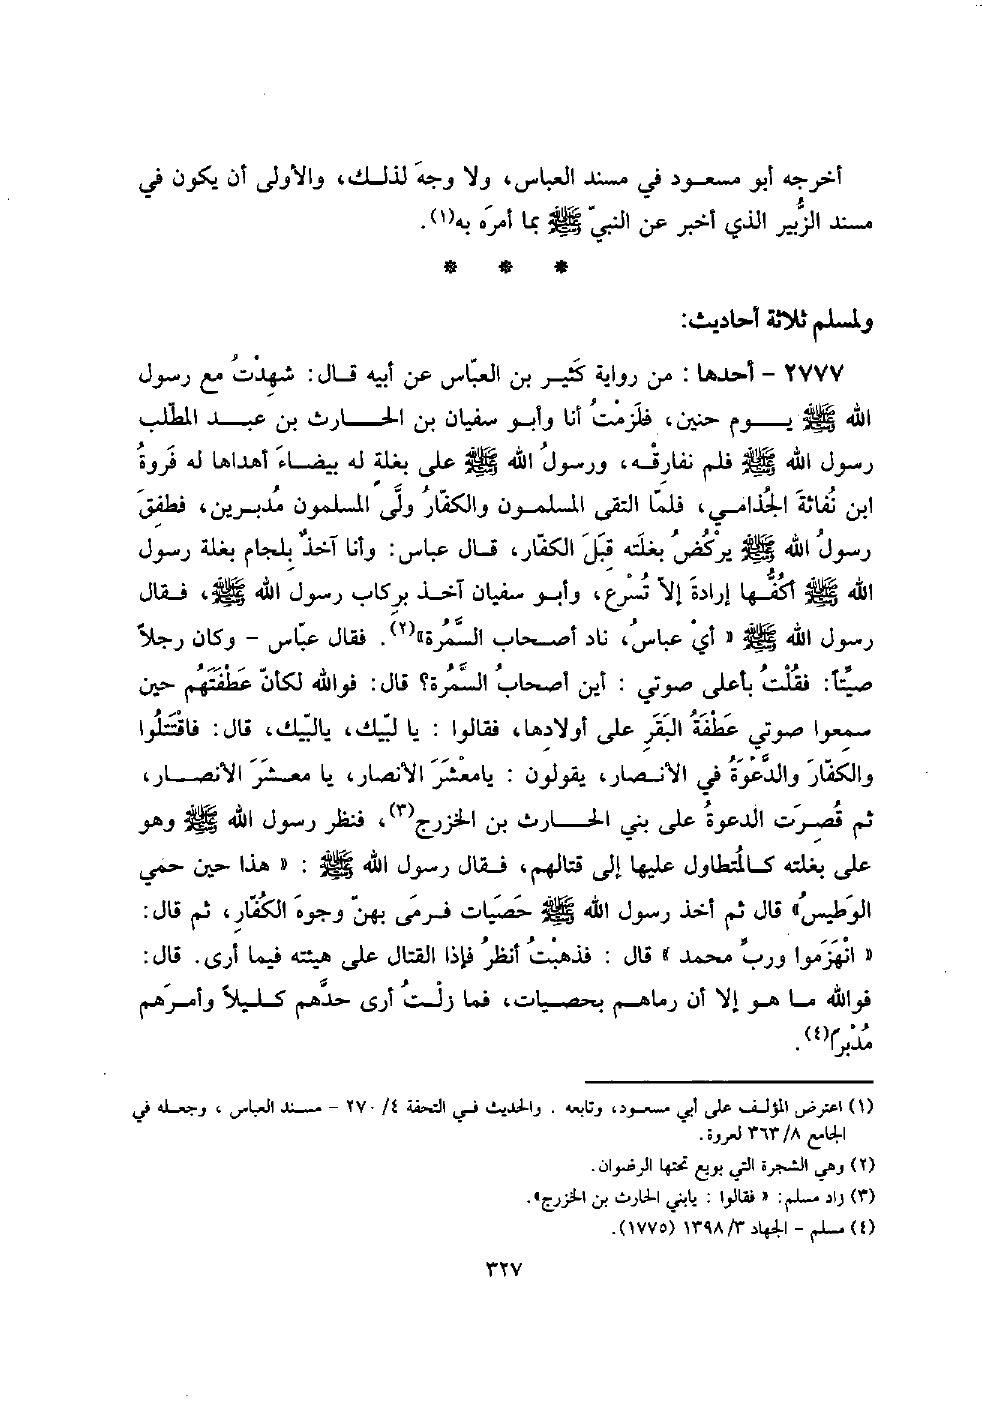 أخرجه أبو مسعود في مسند العباس، ولا وجهَ لذلك، والأولى أن يكون في
مسند الزُّبير الذي أخبر عن النبيّ ﷺ بما أمرَه به(١).
* * *
ولمسلم ثلاثة أحاديث:
٢٧٧٧ - أحدها : من رواية كَثيـر بن العبّاس عن أبيه قال: شهِدْتُ مع رسول
الله ﷺ يـوم حنين، فلَزمْتُ أنا وأبو سفيان بن الحارث بن عبد المطّلب
رسول الله ﷺ فلم نفارقْه، ورسولُ الله ﷺ على بغلةٍ له بيضاءَ أهداها له فَروةُ
ابن نُفاثةَ الجُذامي، فلمّا التقى المسلمون والكفّارُ ولَّى المسلمون مُدبرين، فطفِقَ
رسولُ الله ﷺ يرْكُضُ بغلَته قِبَلَ الكفّار، قال عباس: وأنا آخذٌ بلِجام بغلة رسول
الله ﷺ أكُفُّها إرادةَ إلاّ تُسْرِع، وأبو سفيان آخذ بركاب رسول الله ﷺ، فقال
رسول الله ﷺ « أيْ عباسُ، ناد أصحاب السَّمُرة»(٢). فقال عبّاس - وكان رجلاً
صيِّتاً: فقُلْتُ بأعلى صوتي : أين أصحابُ السَّمُرة؟ قال: فوالله لكأنّ عَطْفَتَهُم حين
سمعوا صوتي عَطْفَةُ البَقَرِ على أولادها، فقالوا : يا لبّيك، يالبّيك، قال: فاقْتَتَلُوا
والكفّارَ والدَّعْوَةُ في الأنصار، يقولون : يامعْشَرَ الأنصار، يا معشَرَ الأنصار،
ثم قُصِرَت الدعوةُ على بني الحارث بن الخزرج(٣)، فنظر رسول الله ﷺ وهو
على بغلته كالمُتطاول عليها إلى قتالهم، فقال رسول الله ﷺ : « هذا حين حمي
الوَطيسُ» قال ثم أخذ رسول الله ﷺ حَصَيات فرمَى بهنّ وجوهَ الكُفّار، ثم قال:
« انْهَزَموا وربِّ محمد » قال : فذهبْتُ أنظرُ فإذا القتال على هيئته فيما أرى. قال:
فوالله ما هو إلا أن رماهم بحصيات، فما زلْتُ أرى حدَّهم كليلاً وأمرَهم
مُدْبراً(٤).
(١) اعترض المؤلف على أبي مسعود، وتابعه . والحديث في التحفة ٤/ ٢٧٠ - مسند العباس ، وجعله في
الجامع ٨/ ٣٦٣ لعروة.
(٢) وهي الشجرة التي بويع تحتها الرضوان.
(٣) زاد مسلم: « فقالوا : يابني الحارث بن الخزرج».
(٤) مسلم - الجهاد ٣/ ١٣٩٨ (١٧٧٥).
٣٢٧